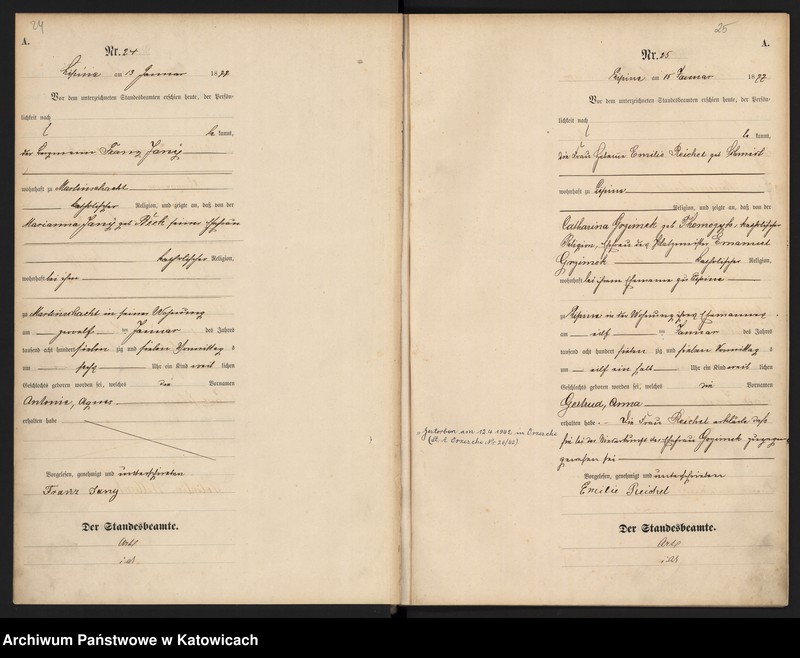 24
A.
Nr. 24
Lipine am 13 Januar 1877
Vor dem unterzeichneten Standesbeamten erschien heute, der Persön-
lichkeit nach
be kannt,
der Franz Jany
wohnhaft zu Martinschacht
katholischer Religion, und zeigte an, daß von der
Marianna Jany geb. seiner Ehefrau
katholischer Religion,
wohnhaft bei ihm
zu Martinschacht in seiner Wohnung
am zwölf ten Januar des Jahres
tausend acht hundert sieben zig und sieben Vormittag s
um sechs Uhr ein Kind weib lichen
Geschlechts geboren worden sei, welches die Vornamen
Antonie, Agnes
erhalten habe
Vorgelesen, genehmigt und unterschrieben
Franz Jany
Der Standesbeamte.
25
A.
Nr. 25
Lipine am 15 Januar 1877
Vor dem unterzeichneten Standesbeamten erschien heute, der Persön-
lichkeit nach
be kannt,
die Frau Hebamme Emilie Reichel geb. Schmidt
wohnhaft zu Lipine
Religion, und zeigte an, daß von der
Catharina Gozimek geb. katholischer
Religion, Ehefrau des Emanuel
Gozimek katholischer Religion,
wohnhaft bei ihrem Ehemanne zu Lipine
zu Lipine in der Wohnung ihres Ehemannes
am elf ten Januar des Jahres
tausend acht hundert sieben zig und sieben Vormittag s
um elf ein halb Uhr ein Kind weib lichen
Geschlechts geboren worden sei, welches die Vornamen
Gertrud, Anna
erhalten habe. Die Frau Reichel erklärte, daß
sie bei der Niederkunft der Ehefrau Gozimek zugegen
gewesen sei
Gestorben am 12.4.1942 in
Vorgelesen, genehmigt und unterschrieben
Emilie Reichel
Der Standesbeamte.
Archiwum Państwowe w Katowicach